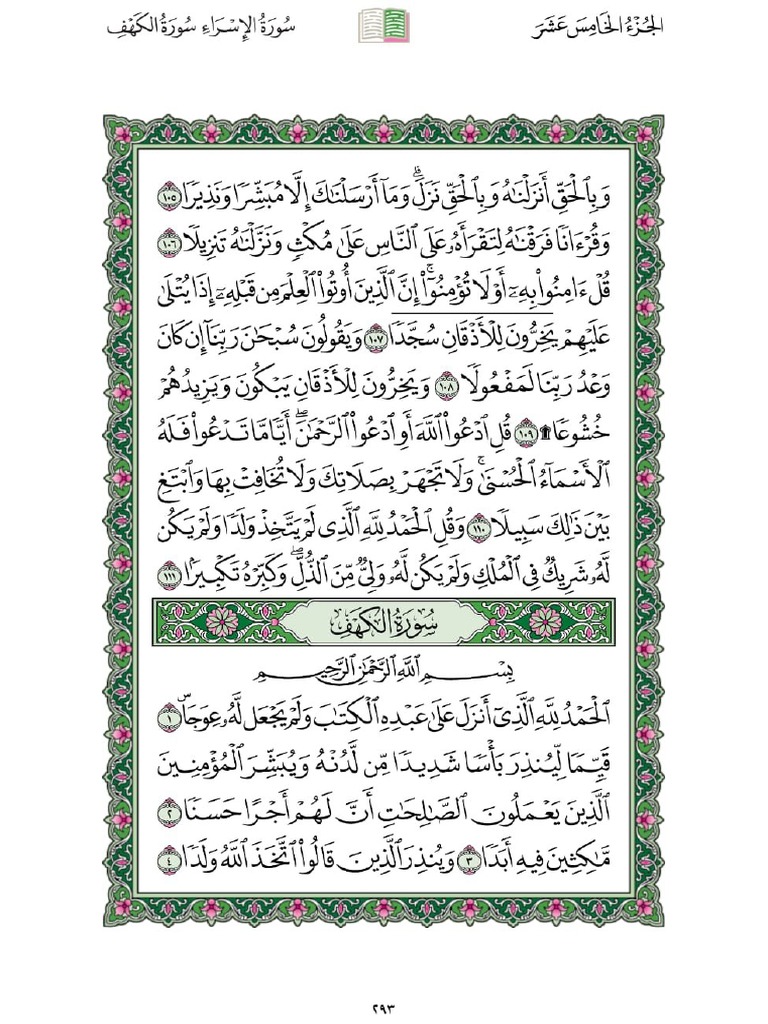 الجُزْءُ الخَامِسَ عَشَرَ
سُورَةُ الإِسْرَاءِ سُورَةُ الكَهْفِ
وَبِٱلْحَقِّ أَنزَلْنَٰهُ وَبِٱلْحَقِّ نَزَلَۗ وَمَآ أَرْسَلْنَٰكَ إِلَّا مُبَشِّرًا وَنَذِيرًا ١٠٥
وَقُرْءَانًا فَرَقْنَٰهُ لِتَقْرَأَهُۥ عَلَى ٱلنَّاسِ عَلَىٰ مُكْثٍ وَنَزَّلْنَٰهُ تَنزِيلًا ١٠٦
قُلْ ءَامِنُوا۟ بِهِۦٓ أَوْ لَا تُؤْمِنُوٓا۟ۚ إِنَّ ٱلَّذِينَ أُوتُوا۟ ٱلْعِلْمَ مِن قَبْلِهِۦٓ إِذَا يُتْلَىٰ
عَلَيْهِمْ يَخِرُّونَ لِلْأَذْقَانِ سُجَّدًا ١٠٧ وَيَقُولُونَ سُبْحَٰنَ رَبِّنَآ إِن كَانَ
وَعْدُ رَبِّنَا لَمَفْعُولًا ١٠٨ وَيَخِرُّونَ لِلْأَذْقَانِ يَبْكُونَ وَيَزِيدُهُمْ
خُشُوعًا۩ ١٠٩ قُلِ ٱدْعُوا۟ ٱللَّهَ أَوِ ٱدْعُوا۟ ٱلرَّحْمَٰنَۖ أَيًّا مَّا تَدْعُوا۟ فَلَهُ
ٱلْأَسْمَآءُ ٱلْحُسْنَىٰۚ وَلَا تَجْهَرْ بِصَلَاتِكَ وَلَا تُخَافِتْ بِهَا وَٱبْتَغِ
بَيْنَ ذَٰلِكَ سَبِيلًا ١١٠ وَقُلِ ٱلْحَمْدُ لِلَّهِ ٱلَّذِى لَمْ يَتَّخِذْ وَلَدًا وَلَمْ يَكُن
لَّهُۥ شَرِيكٌ فِى ٱلْمُلْكِ وَلَمْ يَكُن لَّهُۥ وَلِىٌّ مِّنَ ٱلذُّلِّۖ وَكَبِّرْهُ تَكْبِيرًۢا ١١١
سُورَةُ الكَهْفِ
بِسْمِ ٱللَّهِ ٱلرَّحْمَٰنِ ٱلرَّحِيمِ
ٱلْحَمْدُ لِلَّهِ ٱلَّذِىٓ أَنزَلَ عَلَىٰ عَبْدِهِ ٱلْكِتَٰبَ وَلَمْ يَجْعَل لَّهُۥ عِوَجَاۜ ١
قَيِّمًا لِّيُنذِرَ بَأْسًا شَدِيدًا مِّن لَّدُنْهُ وَيُبَشِّرَ ٱلْمُؤْمِنِينَ
ٱلَّذِينَ يَعْمَلُونَ ٱلصَّٰلِحَٰتِ أَنَّ لَهُمْ أَجْرًا حَسَنًا ٢
مَّٰكِثِينَ فِيهِ أَبَدًا ٣ وَيُنذِرَ ٱلَّذِينَ قَالُوا۟ ٱتَّخَذَ ٱللَّهُ وَلَدًا ٤
٢٩٣